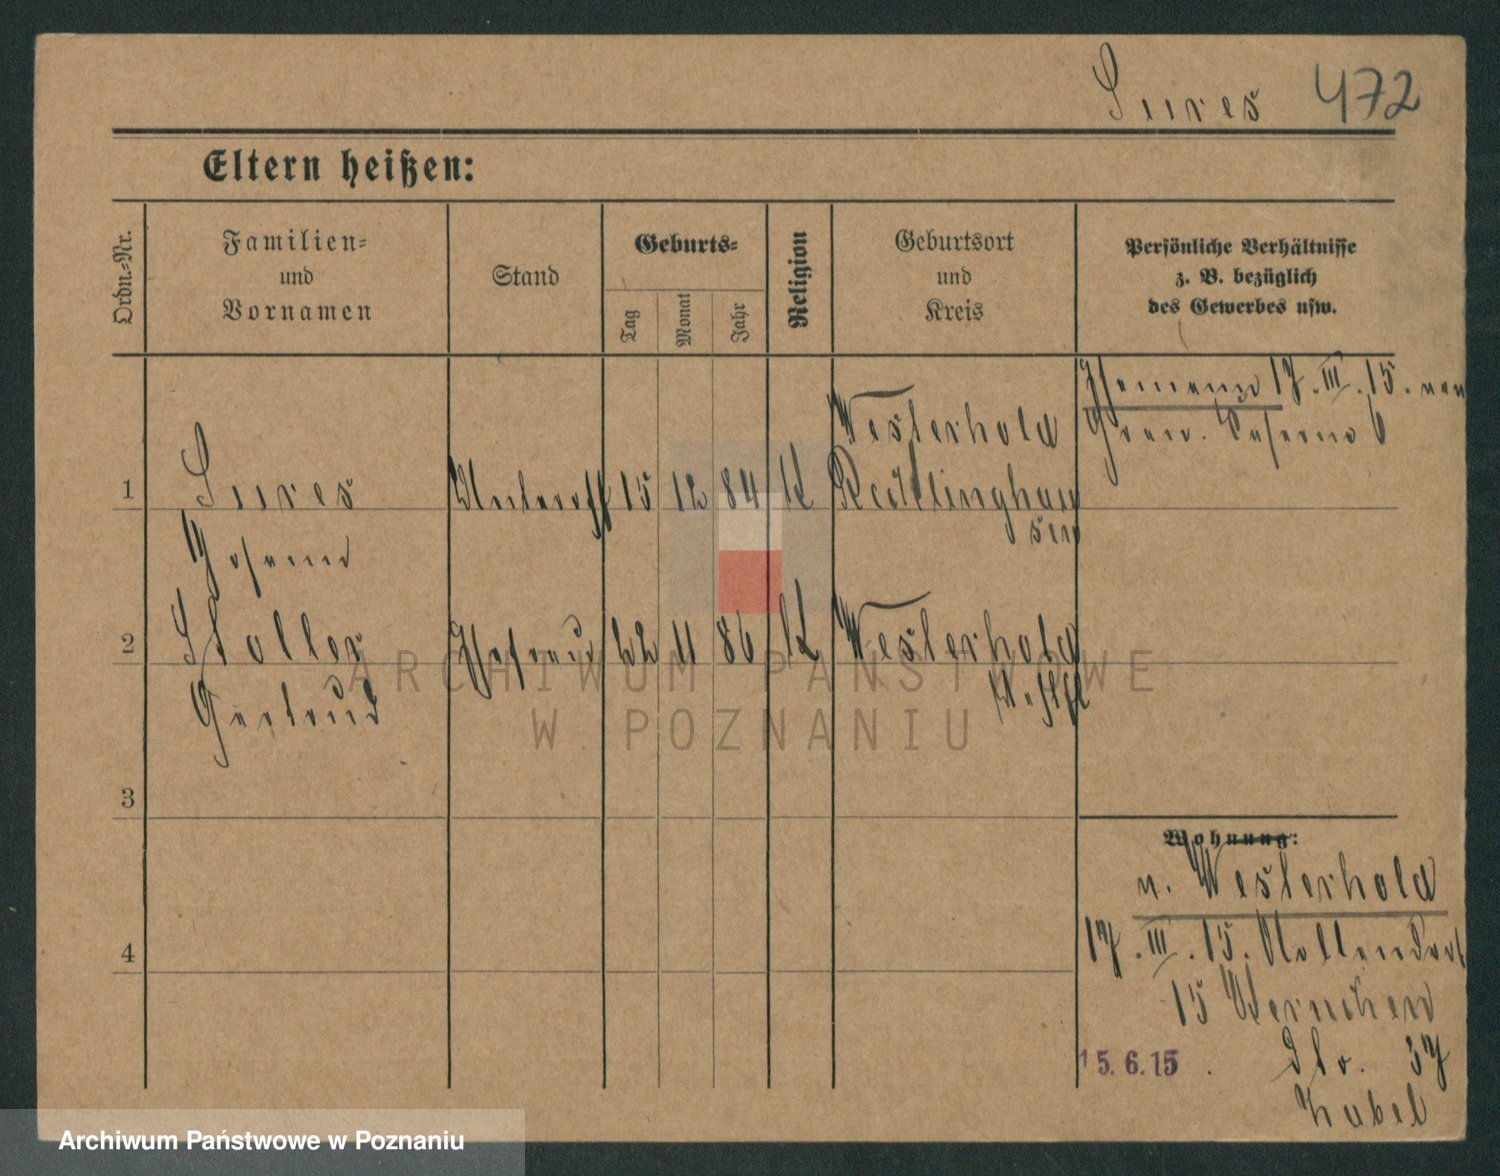 Sures 472
Eltern heißen:
Ordn.-Nr.
Familien-
und
Vornamen
Stand
Geburts-
Tag
Monat
Jahr
Religion
Geburtsort
und
Kreis
Persönliche Verhältnisse
z. B. bezüglich
des Gewerbes usw.
17. III. 15.
Gren. 6
1
Sures
Unteroff
15
12
84
K
Westerhold
Recklinghau
sen
2
Stoller
Gertrud
Ehefrau
22
11
86
K
Westerhold
Westfl
3
4
Wohnung:
v. Westerhold
17. III. 15. Nollendorf
15
Str. 37
Zabel
15. 6. 15
ARCHIWUM PAŃSTWOWE
W POZNANIU
Archiwum Państwowe w Poznaniu